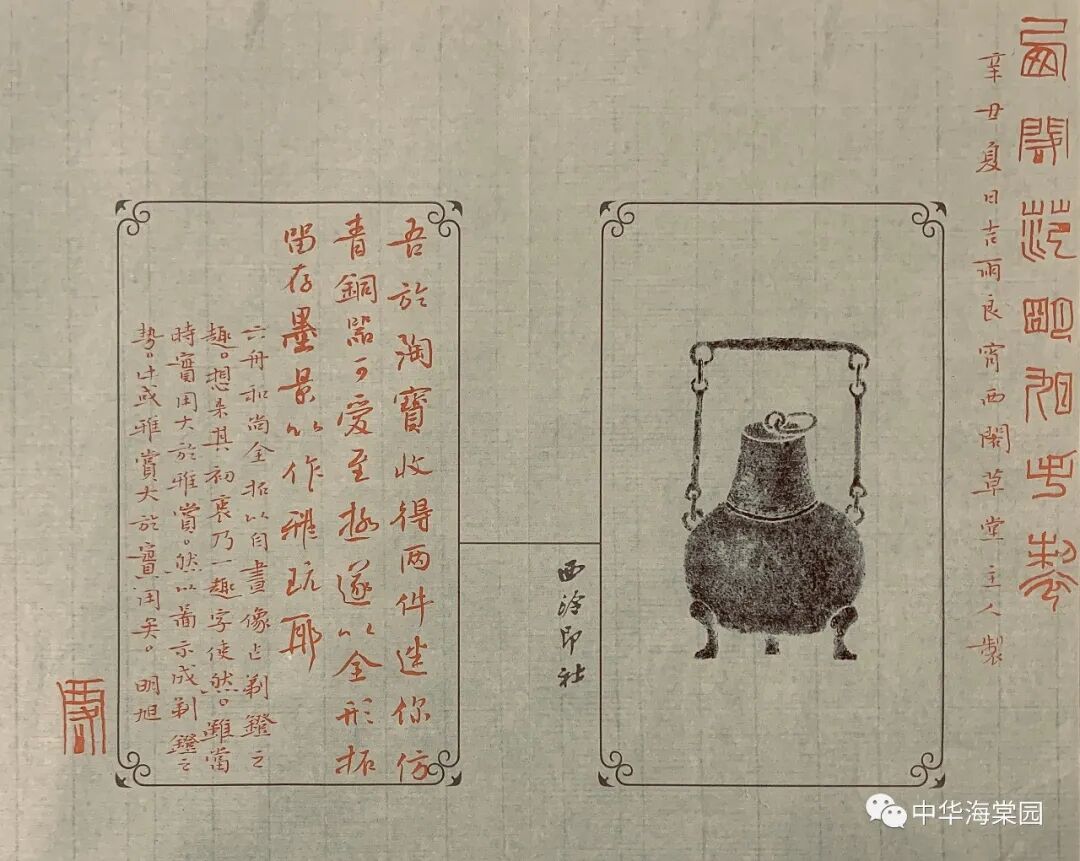 西閣范明旭手製
辛丑夏日吉雨良宵西閣草堂主人製
西泠印社
吾於淘寶收得两件迷你仿
青銅器可愛至極遂以全形拓
留存墨景以作雅玩耶
六舟和尚全拓以自畫像占剔鐙之
趣。想其初衷乃一趣字使然。雖當
時實用大於雅賞。然以示成剔鐙之
勢。或雅賞大於實用矣。明旭
中华海棠园